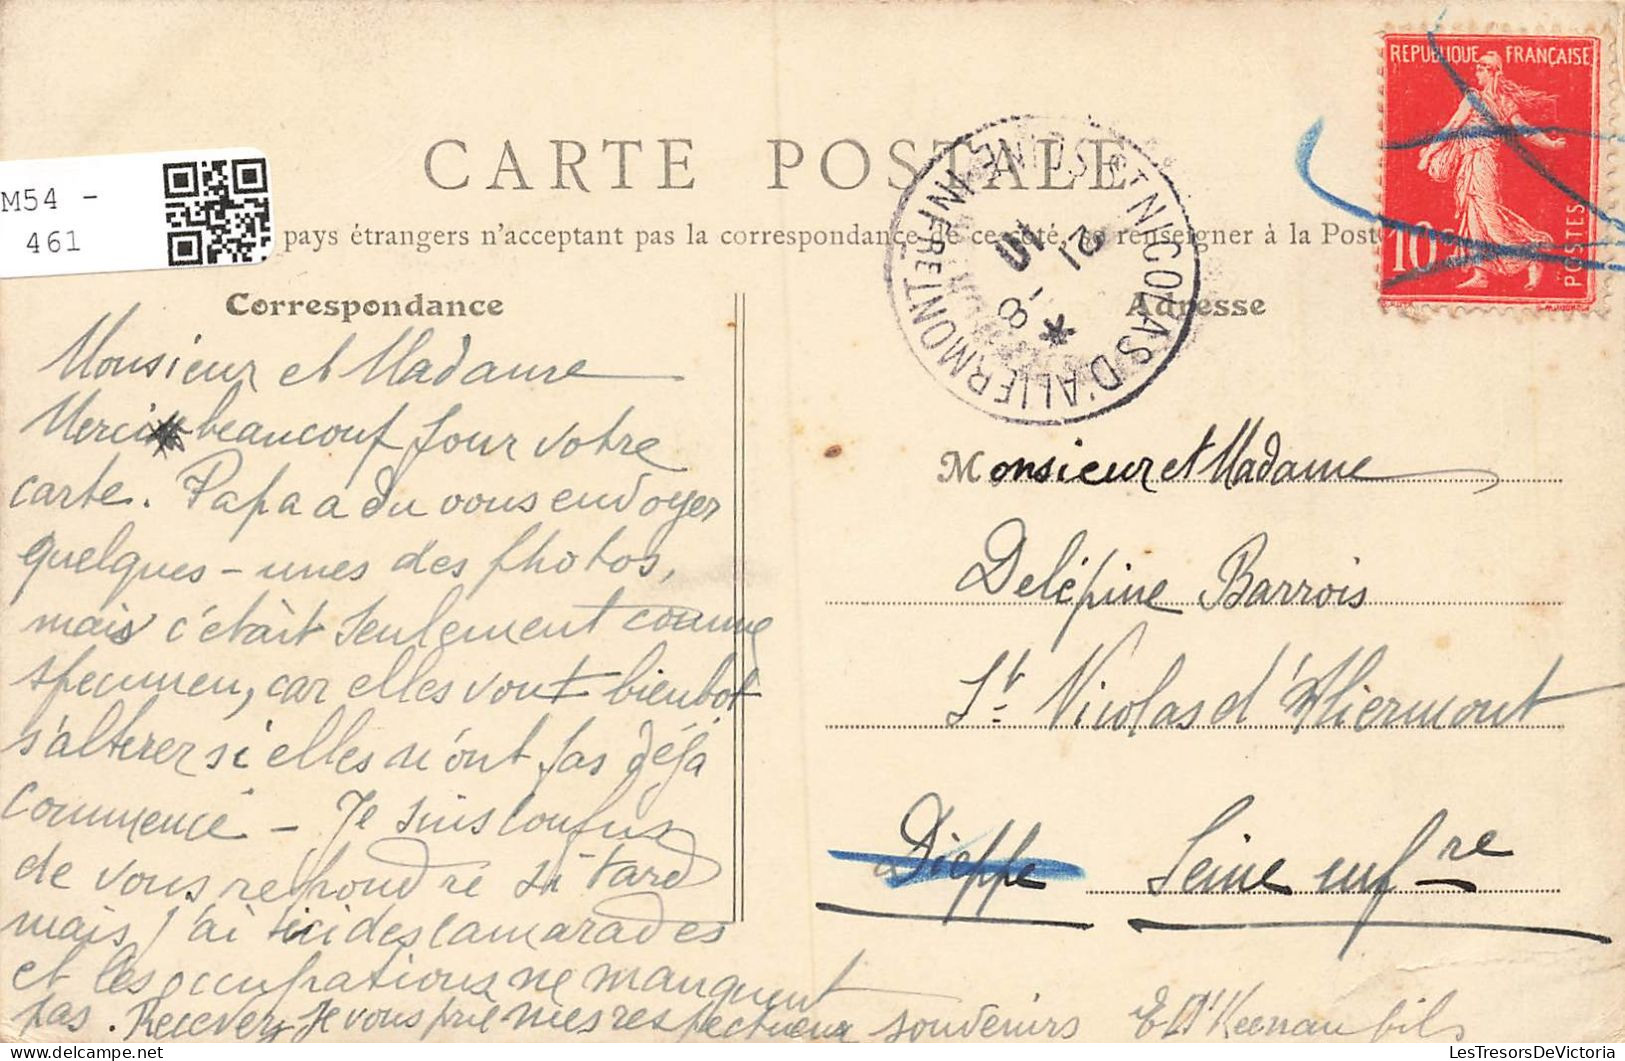 REPUBLIQUE FRANÇAISE
10c
POSTES
CARTE POSTALE
M54 -
461
pays étrangers n'acceptant pas la correspondance de ce côté, se renseigner à la Poste
ST NICOLAS D'ALIERMONT
INFRE
21
8 - 10
Correspondance
Adresse
Monsieur et Madame
Merci beaucoup pour votre
carte. Papa a du vous envoyer
quelques-unes des photos,
mais c'était seulement comme
specimen, car elles vont bientot
s'alterer si elles n'ont pas déjà
commencé - Je suis confus
de vous répondre si tard
mais j'ai ici des camarades
et les occupations ne manquent
pas. Recevez, je vous prie mes respectueux souvenirs
Monsieur et Madame
Delépine Barrois
St. Nicolas d'Aliermont
Dieppe Seine infre
fils
LesTresorsDeVictoria.com